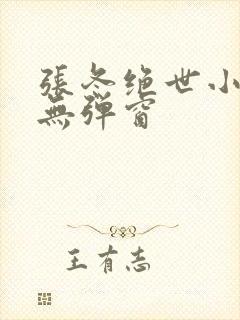 張冬绝世小
無弹窗
王有志